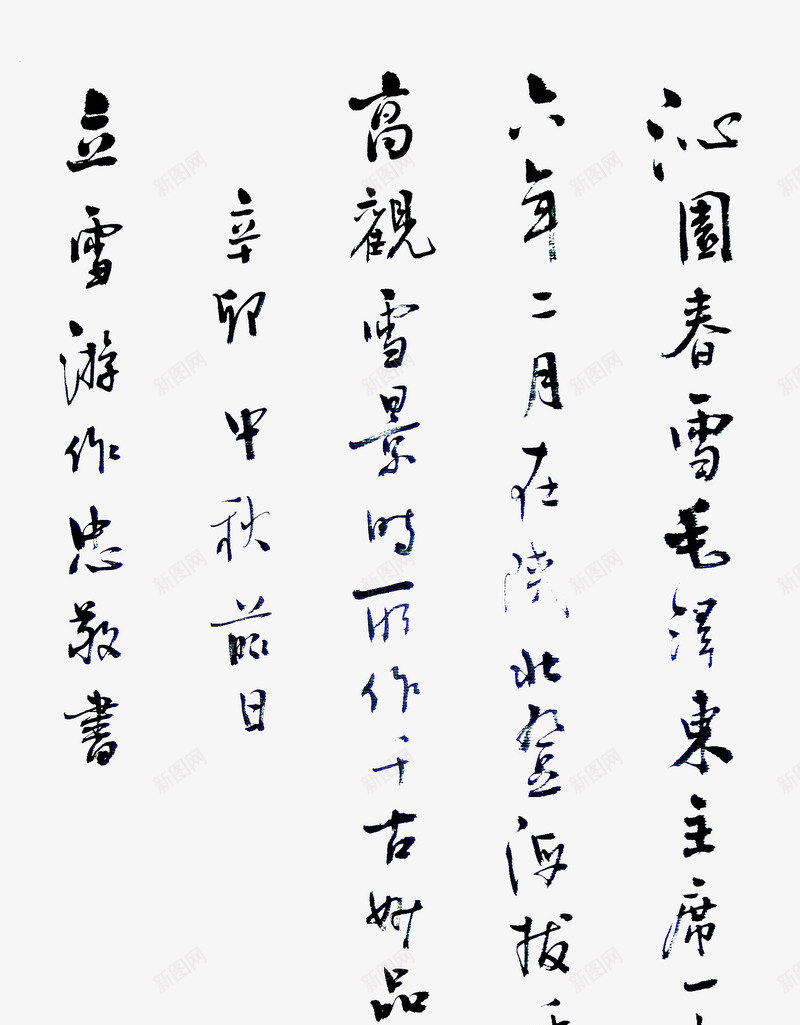 沁園春雪毛澤東主席一
六年二月在陝北登海拔
高觀雪景時所作千古妙品
辛卯中秋節日
立雪游作忠敬書
新图网